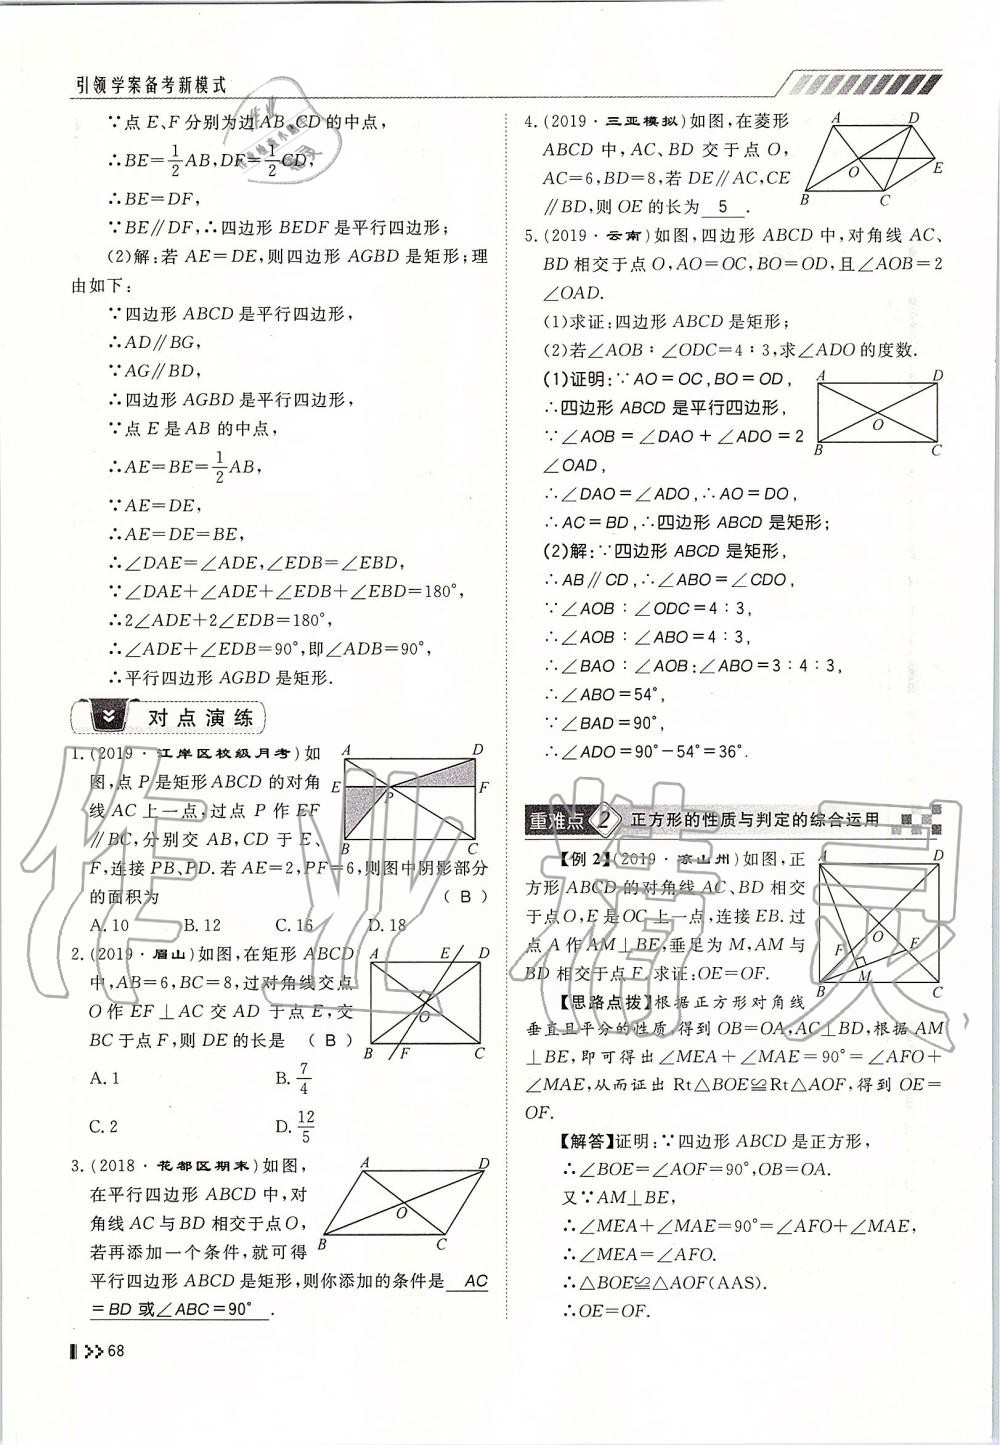 引领学案备考新模式
∵点E、F分别为边AB、CD的中点,
∴BE=1/2AB,DF=1/2CD,
∴BE=DF,
∵BE∥DF,∴四边形BEDF是平行四边形;
(2)解:若AE=DE,则四边形AGBD是矩形;理
由如下:
∵四边形ABCD是平行四边形,
∴AD∥BG,
∵AG∥BD,
∴四边形AGBD是平行四边形,
∵点E是AB的中点,
∴AE=BE=1/2AB,
∵AE=DE,
∴AE=DE=BE,
∴∠DAE=∠ADE,∠EDB=∠EBD,
∵∠DAE+∠ADE+∠EDB+∠EBD=180°,
∴2∠ADE+2∠EDB=180°,
∴∠ADE+∠EDB=90°,即∠ADB=90°,
∴平行四边形AGBD是矩形.
对点演练
1.(2019·江岸区校级月考)如
图,点P是矩形ABCD的对角
线AC上一点,过点P作EF
∥BC,分别交AB,CD于E、
F,连接PB、PD.若AE=2,PF=6,则图中阴影部分
的面积为 (B)
A.10 B.12 C.16 D.18
A D E P F B C
2.(2019·眉山)如图,在矩形ABCD
中,AB=6,BC=8,过对角线交点
O作EF⊥AC交AD于点E,交
BC于点F,则DE的长是 (B)
A.1 B.7/4
C.2 D.12/5
A E D O B F C
3.(2018·花都区期末)如图,
在平行四边形ABCD中,对
角线AC与BD相交于点O,
若再添加一个条件,就可得
平行四边形ABCD是矩形,则你添加的条件是 AC
=BD或∠ABC=90° .
A D O B C
68
4.(2019·三亚模拟)如图,在菱形
ABCD中,AC、BD交于点O,
AC=6,BD=8,若DE∥AC,CE
∥BD,则OE的长为 5 .
A D O E B C
5.(2019·云南)如图,四边形ABCD中,对角线AC、
BD相交于点O,AO=OC,BO=OD,且∠AOB=2
∠OAD.
(1)求证:四边形ABCD是矩形;
(2)若∠AOB∶∠ODC=4∶3,求∠ADO的度数.
(1)证明:∵AO=OC,BO=OD,
∴四边形ABCD是平行四边形,
∵∠AOB=∠DAO+∠ADO=2
∠OAD,
∴∠DAO=∠ADO,∴AO=DO,
∴AC=BD,∴四边形ABCD是矩形;
(2)解:∵四边形ABCD是矩形,
∴AB∥CD,∴∠ABO=∠CDO,
∵∠AOB∶∠ODC=4∶3,
∴∠AOB∶∠ABO=4∶3,
∴∠BAO∶∠AOB:∠ABO=3∶4∶3,
∴∠ABO=54°,
∵∠BAD=90°,
∴∠ADO=90°-54°=36°.
A D O B C
重难点2 正方形的性质与判定的综合运用
【例2】(2019·凉山州)如图,正
方形ABCD的对角线AC、BD相交
于点O,E是OC上一点,连接EB.过
点A作AM⊥BE,垂足为M,AM与
BD相交于点F.求证:OE=OF.
A D O F E M B C
【思路点拨】根据正方形对角线
垂直且平分的性质,得到OB=OA,AC⊥BD,根据AM
⊥BE,即可得出∠MEA+∠MAE=90°=∠AFO+
∠MAE,从而证出Rt△BOE≌Rt△AOF,得到OE=
OF.
【解答】证明:∵四边形ABCD是正方形,
∴∠BOE=∠AOF=90°,OB=OA.
又∵AM⊥BE,
∴∠MEA+∠MAE=90°=∠AFO+∠MAE,
∴∠MEA=∠AFO.
∴△BOE≌△AOF(AAS).
∴OE=OF.
作业精灵